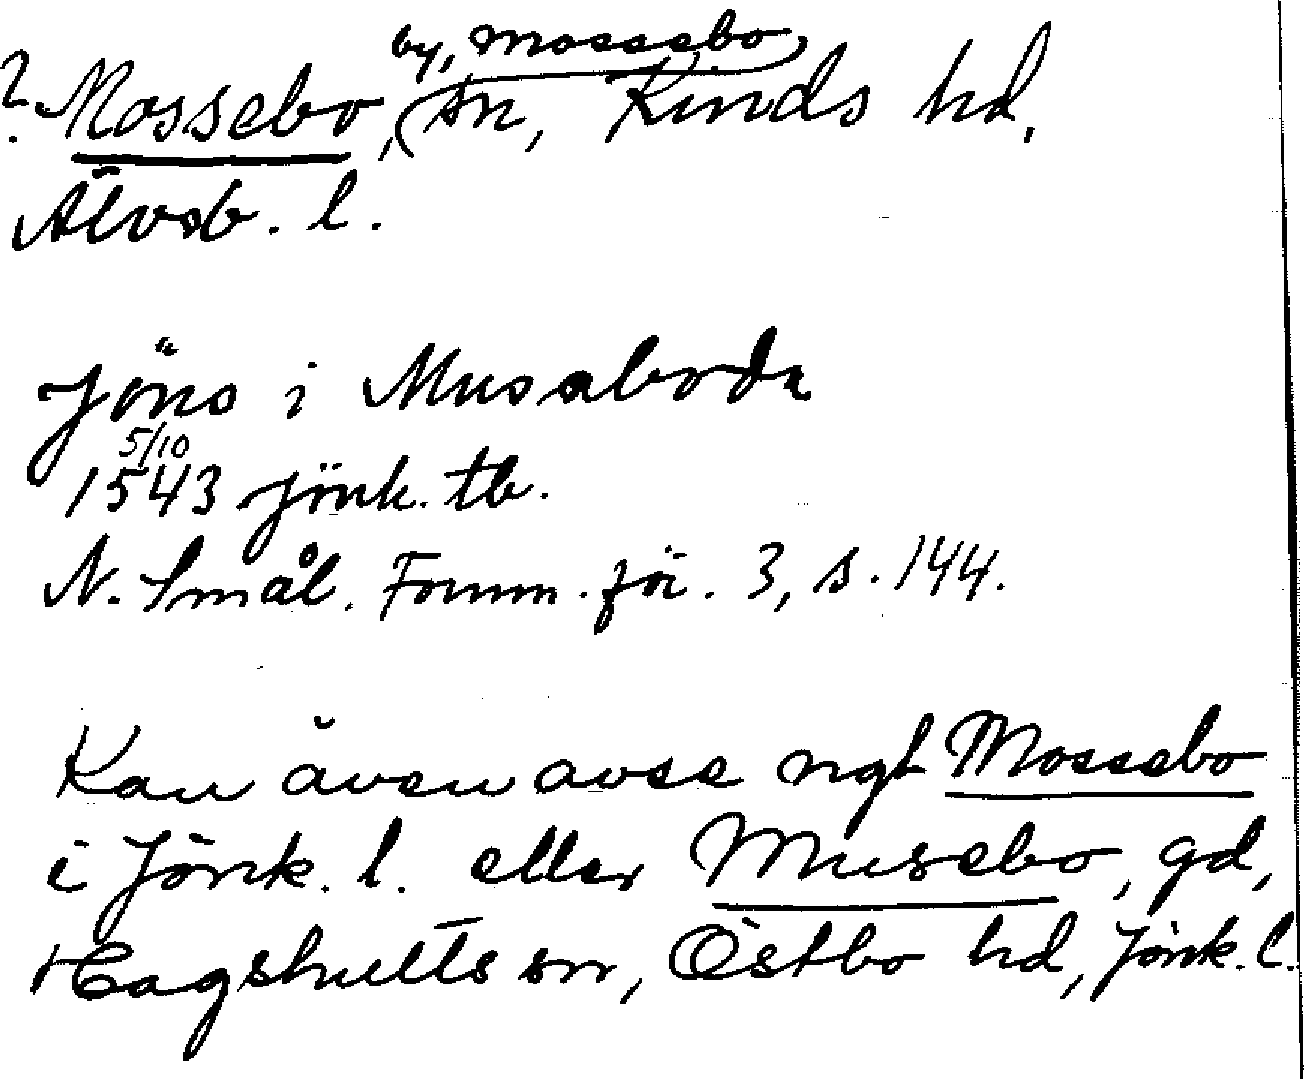 by, Mossebo
? Mossebo, sn, Kinds hd,
Älvsb. l.
Jöns i Musaboda
5/10
1543 Jönk. tb.
N. Smål. Fornm. för. 3, s. 144.
Kan även avse ngt Mossebo
i Jönk. l. eller Musebo, gd,
Hagshults sn, Östbo hd, Jönk. l.